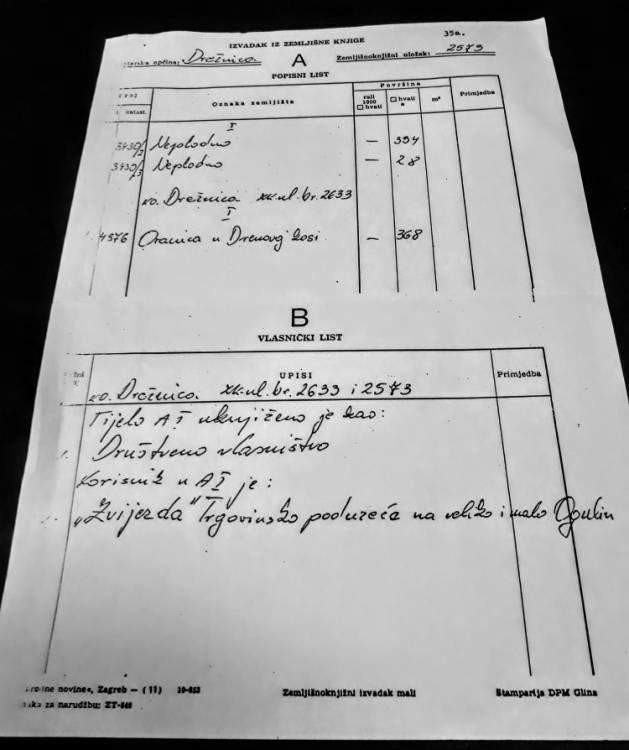 35a.
IZVADAK IZ ZEMLJIŠNE KNJIGE
općina: Drežnica A Zemljišnoknjižni uložak: 2573
POPISNI LIST
Oznaka zemljišta Površina Primjedba
rali 1600 □ hvati □ hvati a m²
I
3430/2 Neplodno — 354
3430/3 Neplodno — 28
ko. Drežnica zk.ul.br. 2633
I
4576 Oranica u Drenovoj kosi — 368
B
VLASNIČKI LIST
UPISI Primjedba
ko. Drežnica zk.ul.br. 2633 i 2573
Tijelo A I uknjiženo je kao:
Društveno vlasništvo
Korisnik u A I je:
„Zvijezda" Trgovinsko poduzeće na veliko i malo Ogulin
novine, Zagreb — (11) 10-853 Zemljišnoknjižni izvadak mali Štamparija DPM Glina
za narudžbu: ZT-840